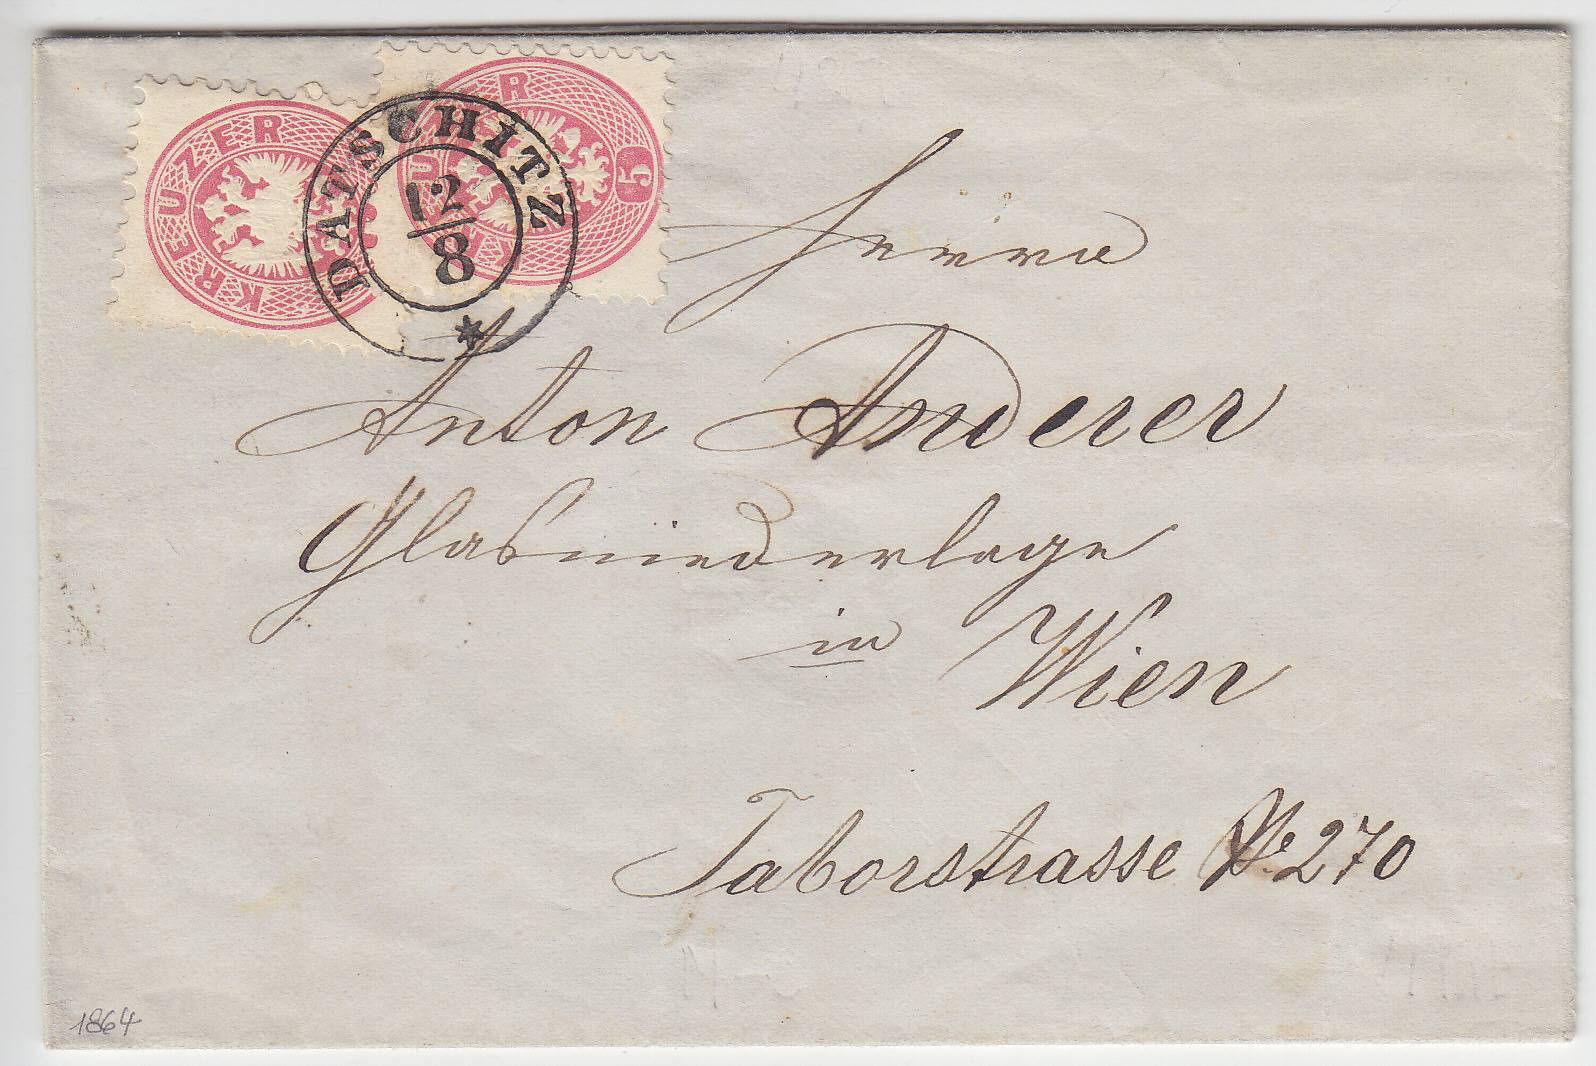 KREUZER
5
DATSCHITZ
12/8
*
Herrn
Anton Anderer
Glasniederlage
in Wien
Taborstrasse № 270
1864